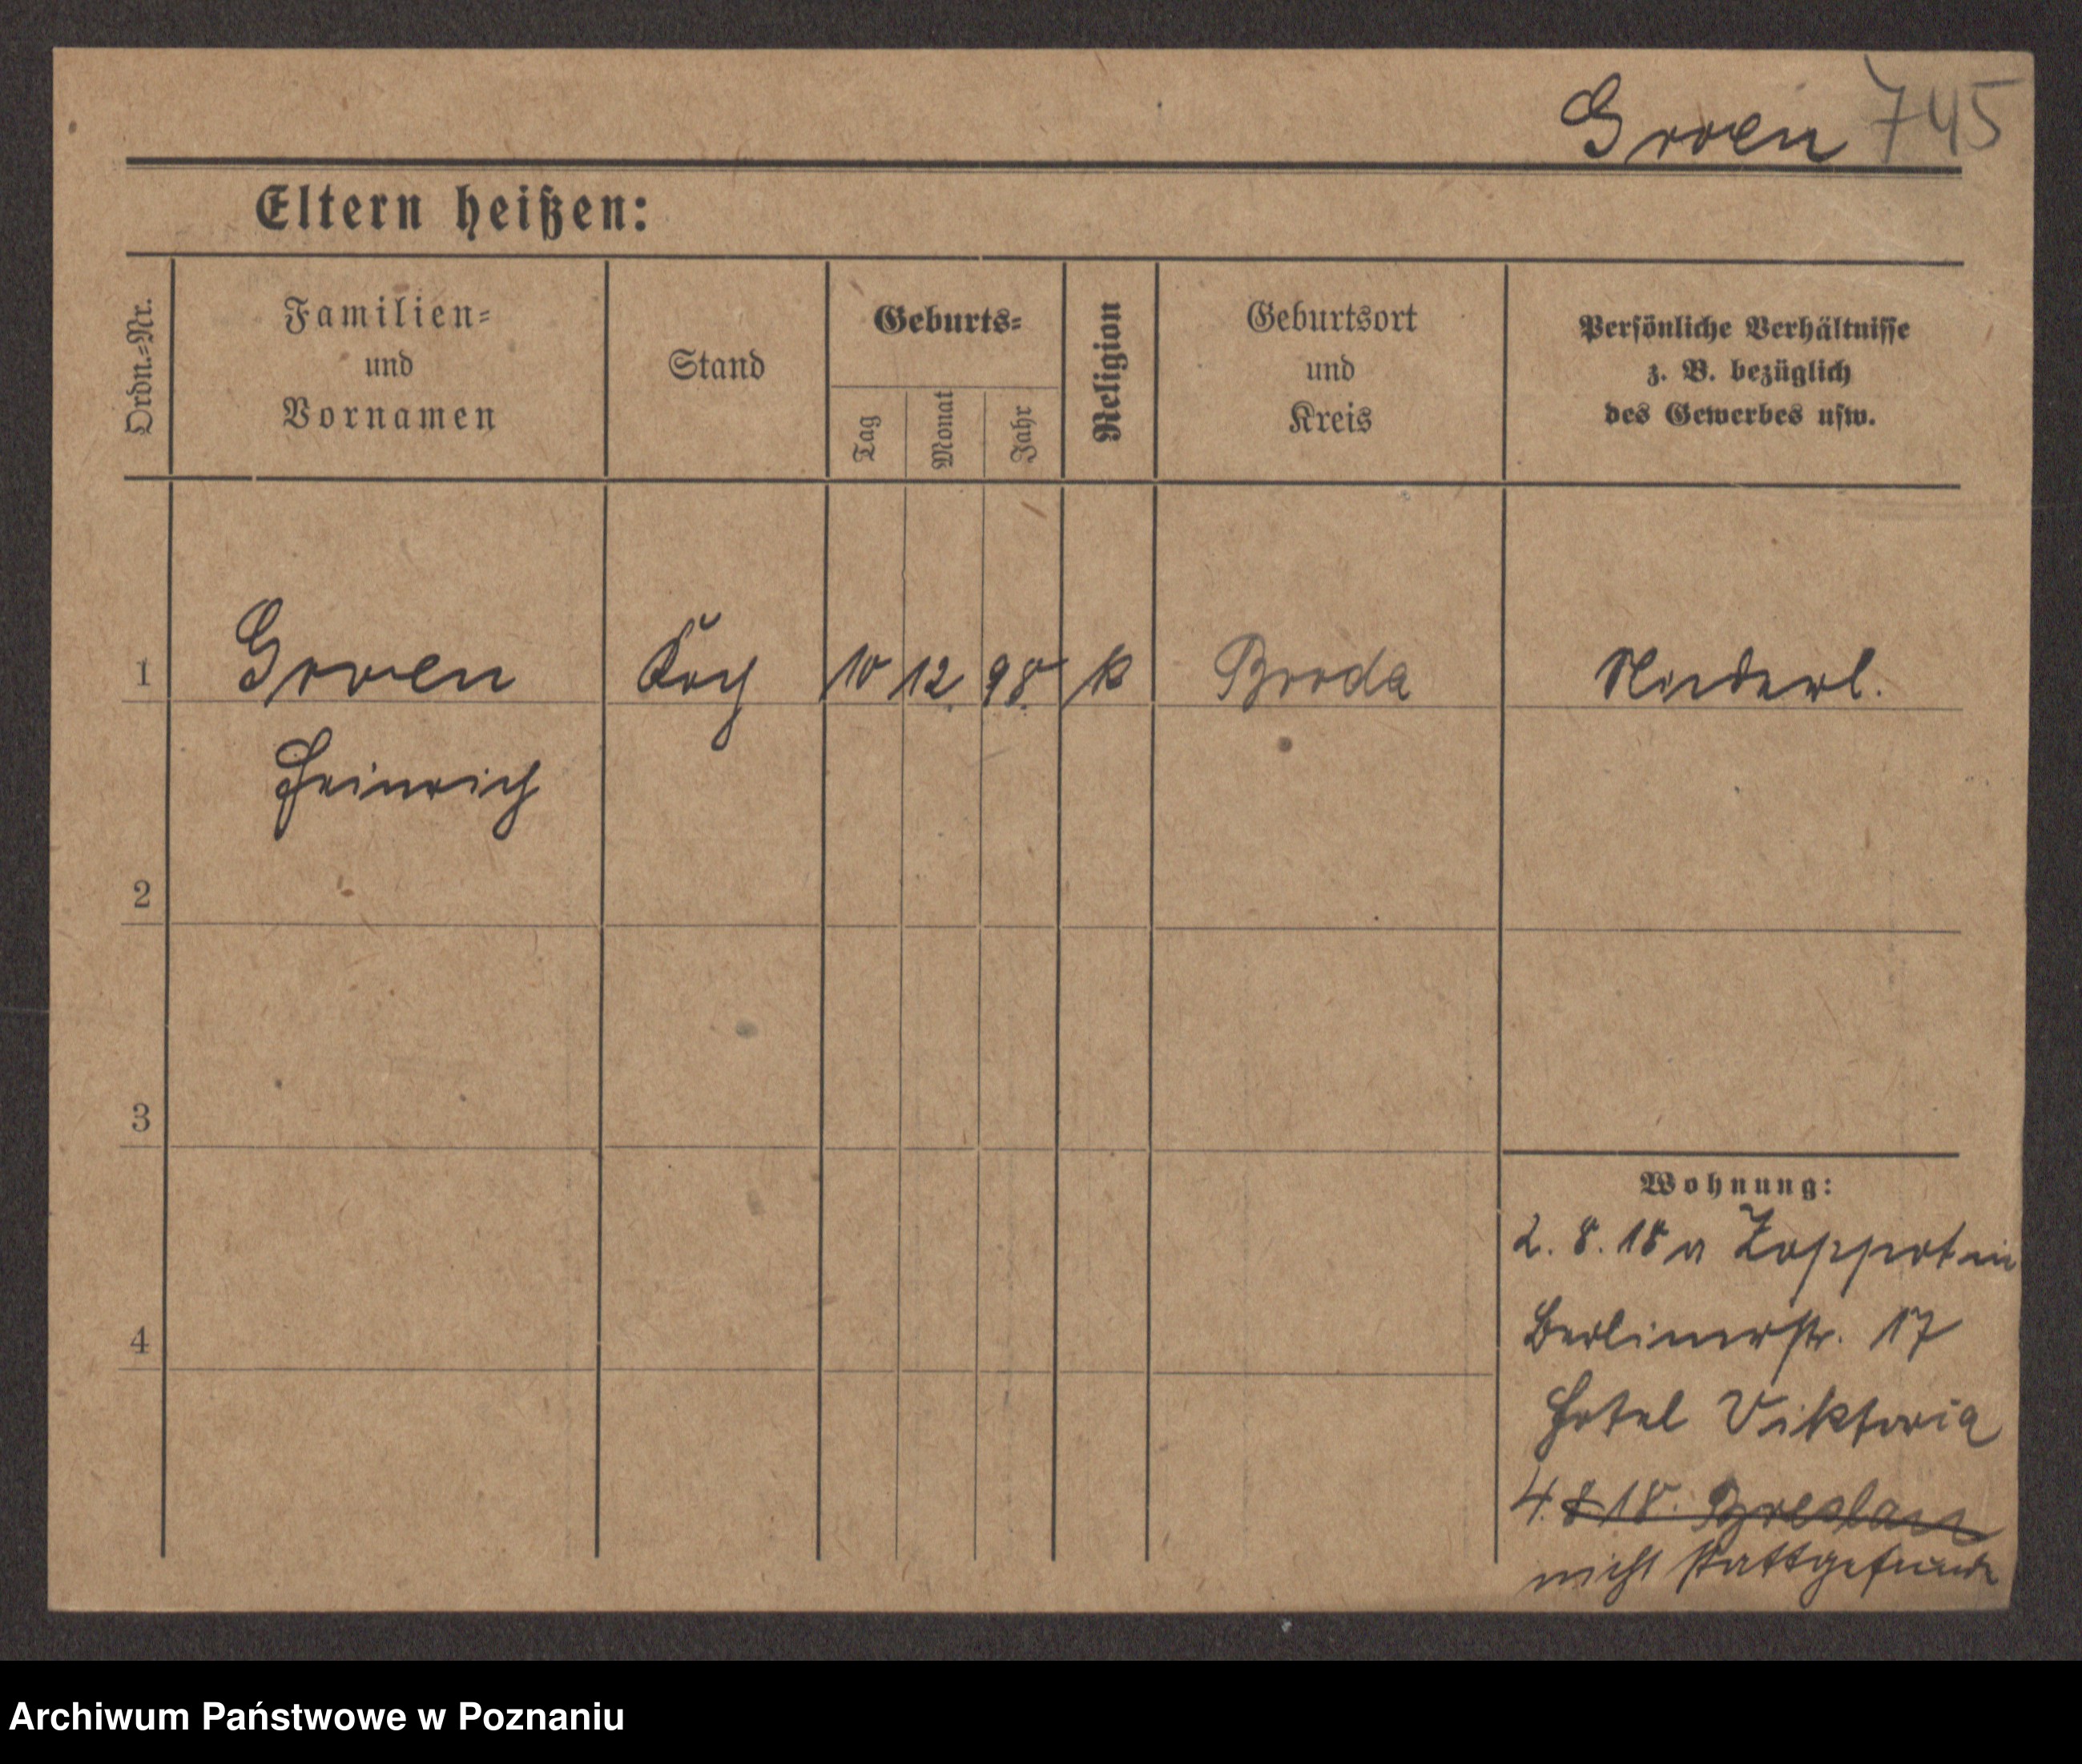 Groen 745
Eltern heißen:
Ordn.=Nr.
Familien=
und
Vornamen
Stand
Geburts=
Tag
Monat
Jahr
Religion
Geburtsort
und
Kreis
Persönliche Verhältnisse
z. B. bezüglich
des Gewerbes usw.
1 Groen Koch 10 12. 98. k Breda Niederl.
Heinrich
2
3
4
Wohnung:
2. 8. 18 a Zoppot in
Berlinerstr. 17
Hotel Viktoria
4. 8 18. Breslau
nicht stattgefunden
Archiwum Państwowe w Poznaniu